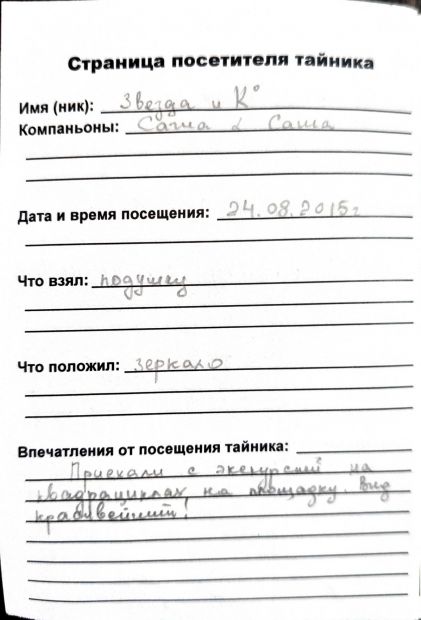 Страница посетителя тайника
Имя (ник): Звезда и К°
Компаньоны: Саша & Саша
Дата и время посещения: 24.08.2015г
Что взял: подушку
Что положил: зеркало
Впечатления от посещения тайника:
Приехали с экскурсией на
квадрациклах, на площадку. Вид
красивейший!